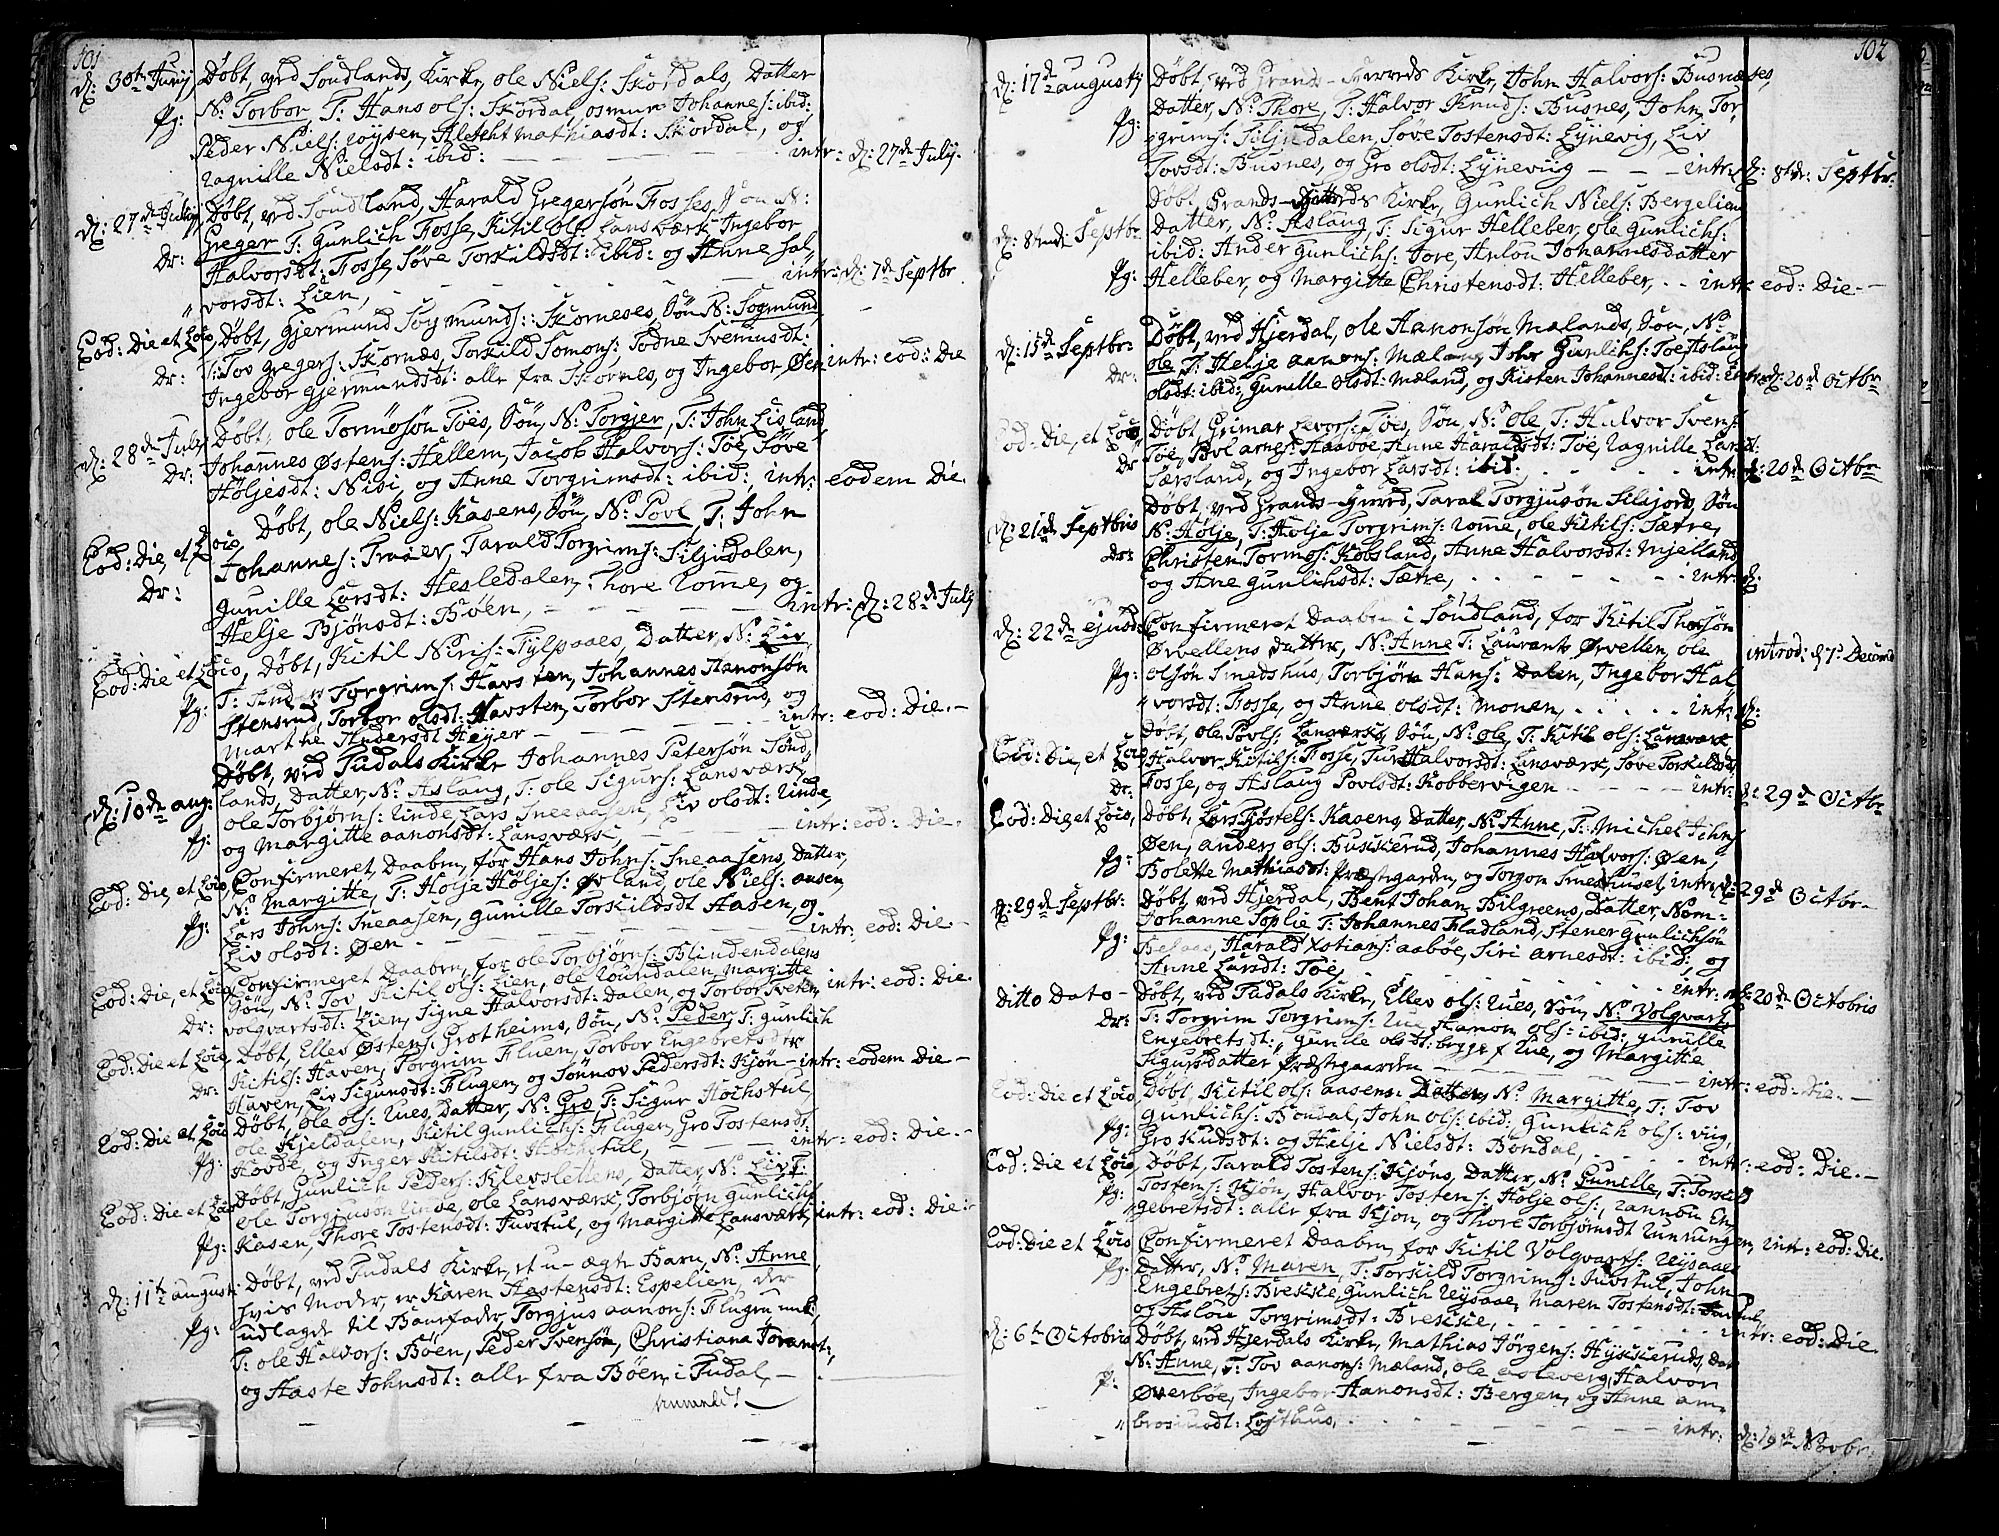 101
d: 30te Junij Døbt, ved Soudlands, Kirke, ole Niels: Skordals, Datter
Pg: N: Torbor T: Hans ols: Skordal, osmun Johannes: ibid:
Peder Niels: Mathiasdt: Skordal, og
ragnille Nielsdt: ibid: intr: d: 27de July.
d: 27de July, Døbt, ved Soudland, Harald Gregersøn Fosses, Søn N:
Dr: Greger T: Gunlich Fosse, Kitil ols: Lansværk, Ingebor
Halvorsdt: Fosse, Søve Torkildsdt: ibid: og Anne Hal
vorsdt: Lien, intr: d: 7de Septbr
Eod: Die et Loco, Døbt, Gjermund Sogmunds: Skorneses, Søn N: Sogmund,
Dr: T: Tov gregers: Skornæs, Torkild Somons: Todne Svenusdt:
Ingebor Gjermundsdt: alle fra Skornes, og Ingebor Øen intr: eod: Die
d: 28de July Døbt, ole Tormosøn Toes, Søn, N: Torgjer, T: John Lisland,
Dr: Johannes Østens: Hellem, Jacob Halvors: Toe, Søve
Høljesdt: Nisi, og Anne Torgrimsdt: ibid: intr: eodem Die.
Eod: Die, et Loco, Døbt, ole Niels: Kasens, Søn, N: Povl, T: John
Dr: Johannes: Traaer, Tarald Torgrims: Siljudalen,
Gunille Larsdt: Hesledalen, Thore rome, og
Helje Bjønsdt: Bøen, intr: d: 28de July
Eod: Die et Loco, Døbt, Kitil Niris: Fylpaaes, Datter, N: Liv,
Pg: T: Ander Torgrims: Havsten, Johannes Aanonsøn
Stensrud, Torbor olsdt: Havsten, Torbor Stensrud, og
Marthe Andersdt Høyer intr: eod: Die.
d: 10de aug: Døbt, ved Tudals Kirke Johannes Petersøn Sønd
lands, Datter, N: Aslaug, T: ole Sigurs: Lansværk,
Pg: ole Torbjørns: Unde, Lars Sneaasen, Liv olsdt: Unde,
og Margitte aanonsdt: Lansværk intr: eod: Die.
Eod: Die, et Loco, Confirmeret, Daaben, for Hans Johns: Sneaasens, Datter,
Pg: N: Margitte, T: Holje Høljes: Øvland, ole Niels: aasen,
Lars Johns: Sneaasen, Gunille Torkildsdt Aasen, og
Liv olsdt: Øen intr: eod: Die
Eod: Die, et Loco, Confirmeret Daaben, for ole Torbjørns: Blindendalens
Dr: Søn, N: Tov Kitil ols: Lien, ole Uundalen, Margitte
volgvartsdt: Lien, Signe Halvorsdt: Dalen, og Torbor Tveten, intr: eod: Die.
Eod: Die et Loco Døbt, Ellev Østens: Grotheims, Søn, N: Peder, T: Gunlich
Dr: Kitils: Haven, Torgrim Fluen, Torbor Engebretsdtr
Haven, Liv Sigursdt: Flugen, og Sønnov Pedersdt: Kjøn intr: eodem Die
Eod: Die et Loco Døbt, ole ols: Rues, Datter, N: Gro, T: Sigur Hochstul,
Pg: ole Kjeldalen, Kitil Gunlichs: Flugen, Gro Tostensdt
Hovde, og Inger Kitilsdt: Hochstul, intr: eod: Die.
Eod: Die et Loco Døbt, Gunlich Peders: Klevsletens, Datter, N: Liv T:
Pg: ole Torgjuson Unde, ole Lansværk, Torbjørn Gunlichs
Kasen, Thore Tostensdt: Juvstul, og Margitte Lansværk intr: eod: Die:
d: 11te august: Døbt, ved Tudals Kirke, et u-ægte Barn, N: Anne,
Pg: hvis Moder, er Karen Aastensdt: Espelien, der
udlagde til Barnfader, Torgjus aanons: Flugen
T: ole Halvors: Bøen, Peder Svensøn, Christiana
og Aaste Johnsdt: alle fra Bøen i Tudal,
102
d: 17de augusty Døbt, ved Grands-Herreds Kirke, John Halvors: Busneses,
Pg: Datter, N: Thore, T: Halvor Knuds: Busnes, John Tor
grims: Siljudalen, Søve Tostensdt: Lynevig, Liv
Tovsdt: Busnes, og Gro olsdt: Lynevig intr: d: 8de: Septbr:
Døbt, Grands-Herreds Kirke, Gunlich Niels: Bergelien
d: 8tende Septbr Datter, N: Aslaug, T: Sigur Helleber, ole Gunlichs:
ibid: Ander Gunlichs: Jore, Anlou Johannesdatter
Pg: Helleber, og Margitte Christensdt: Helleber, intr eod: Die.
d: 15de Septbr: Døbt, ved Hjerdal, ole Aanonsøn Mælands, Søn, N:
Dr: ole T: Helje aanons: Mæland, John Gunlichs: Toe, Aslaug
olsdt: ibid: Gunille olsdt: Mæland, og Kisten Johannesdt: ibid: intr: d: 20de Octbr
Eod: Die, et Loco, Døbt, Grimar Levors: Toes, Søn, N: ole, T: Halvor Svens:
Dr Toe, Povl arnes: Haaboe, Anne Haraldsdt: Toe, Ragnille Larsdt:
Særsland, og Ingebor Larsdt: ibid: intr: d: 20de Octbr
d: 21de Septbris Døbt, ved Grands-Herred, Taral Torgjusøn Silijord, Søn
N: Holje, T: Holje Torgrims: rome, ole Kitils: Sætre,
Dr: Christen Tormos: Kobsland, Anne Halvorsdt: Mjelland
og Ane Gunlichsdt: Sætre, intr: d:
d: 22de ejusd: Confirmeret Daaben i Soudland, for Kitil Thorsøn
Ørvellens Datter, N: Anne T: Laurants Ørvellen, ole introd: d 7de Decemb
Pg: olsøn Smedshus, Torbjørn Hans: Dalen, Ingebor Hal
vorsdt: Fosse, og Anne olsdt: Monen, intr: d:
Døbt, ole Povls: Lansværk, Søn, N: ole, T: Kitil ols: Lansværk
Eod: Die, et Loco Halvor Kitils: Fosse, Halvorsdt: Lansværk, Søve Torkildsdt
Dr: Fosse, og Aslaug Povlsdt: Kobbervigen intr: d: 29de Octbr
Eod: Die et Loco, Døbt, Lars Kasens, Datter, N: Anne, T: Michel Johns
Pg: Øen, anders ols: Buskerud, Johannes Halvors: Øen,
Bolette Mathiasdt: Præstegarden, og Torgon Smedshuset, intr: d: 29de Octbr
d: 29de Septbr: Døbt, ved Hjerdal, Bent Johan Bilgreens, Datter, Nom-
Pg: Johanne Soplie T: Johannes Fladland, Stener Gunlichsøn
Besaas, Harald aabøe, Siri arnesdt: ibid: og
Anne Larsdt: Toe, intr: d: 20de Octobris
Ditto Dato - Døbt, ved Tudals Kirke, Ellev ols: Rues, Søn, N: Volgvart
Dr: T: Torgrim Torgrims: Rue, Aanon ols: ibid: gunille
Engebretsdt: Gunille olsdt: bygge f Rue, og Margitte
Sigursdatter Præstgaarden intr: eod: Die.
Eod: Die et Loco Døbt, Kitil ols: aasens Datter, N: Margitte, T: Tov
Pg: Gunlichs: Bondal, John ols: ibid: Gunlich ols: viig,
Gro Kudsdt: og Helje Nielsdt: Bondal, intr: eod: Die.
Eod: Die et Loco Døbt, Tarald Tostens: Kjøns, Datter, N: Gunille, T: Torkild
Pg: Tostens: Kjøn, Halvor Tostens: Holje ols: rannou En,
gebretsdt: alle fra Kjøn, og Thore Torbjørnsdt Runningen, intr: eod: Die.
Eod: Die et Loco Confirmeret Daaben, for Kitil Volgvarts: Rysaaes
Pg: Datter, N: Maren, T: Torkild Torgrims: Juvstul, John
Engebrets: Breskie, Gunlich Rysaae, Maren Tostensdt:
og Aslou Torgrimsdt: Breskie, intr: eod: Die.
d: 6te Octobris Døbt, ved Hjerdals Kirke, Mathias Jørgens: Hyskeruds, Dat
P: N: Anne, T: Tov aanons: Mæland, ole Halvor
Øverbøe, Ingebor Aanonsdt: Bergen, og Anne am-
brosiusdt: Lofthus, intr: d: 19de Novbr: